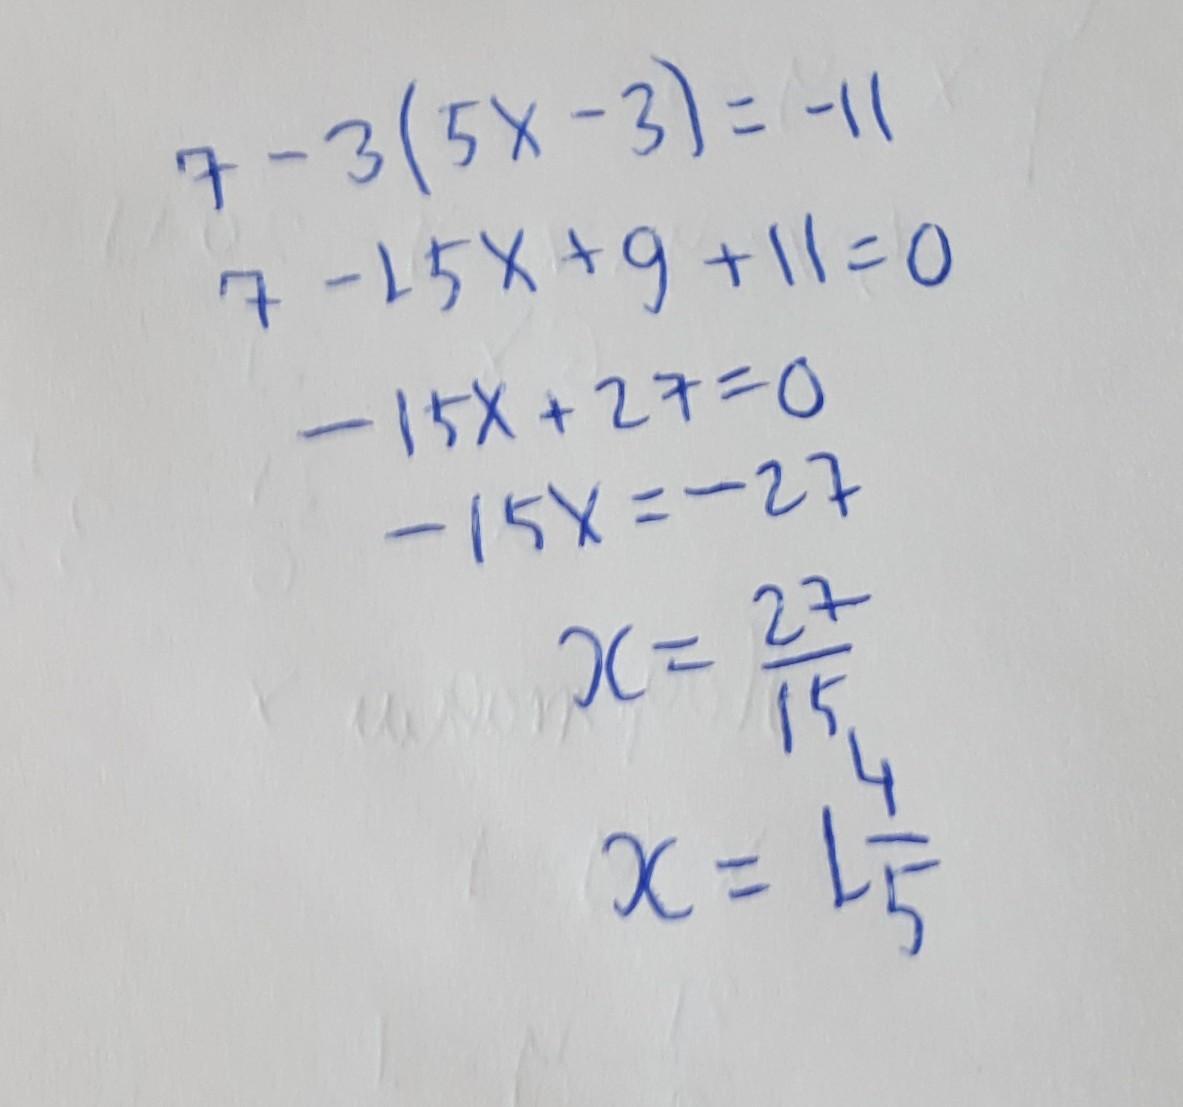 7 - 3(5x - 3) = -11
7 - 15x + 9 + 11 = 0
- 15x + 27 = 0
- 15x = - 27
x = 27/15
x = 1 4/5